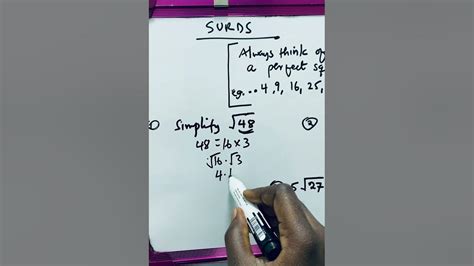 SURDS
Always think of
a perfect sq
eg... 4, 9, 16, 25,
Simplify √48
48 = 16 × 3
√16 · √3
4 ·
②
5√27